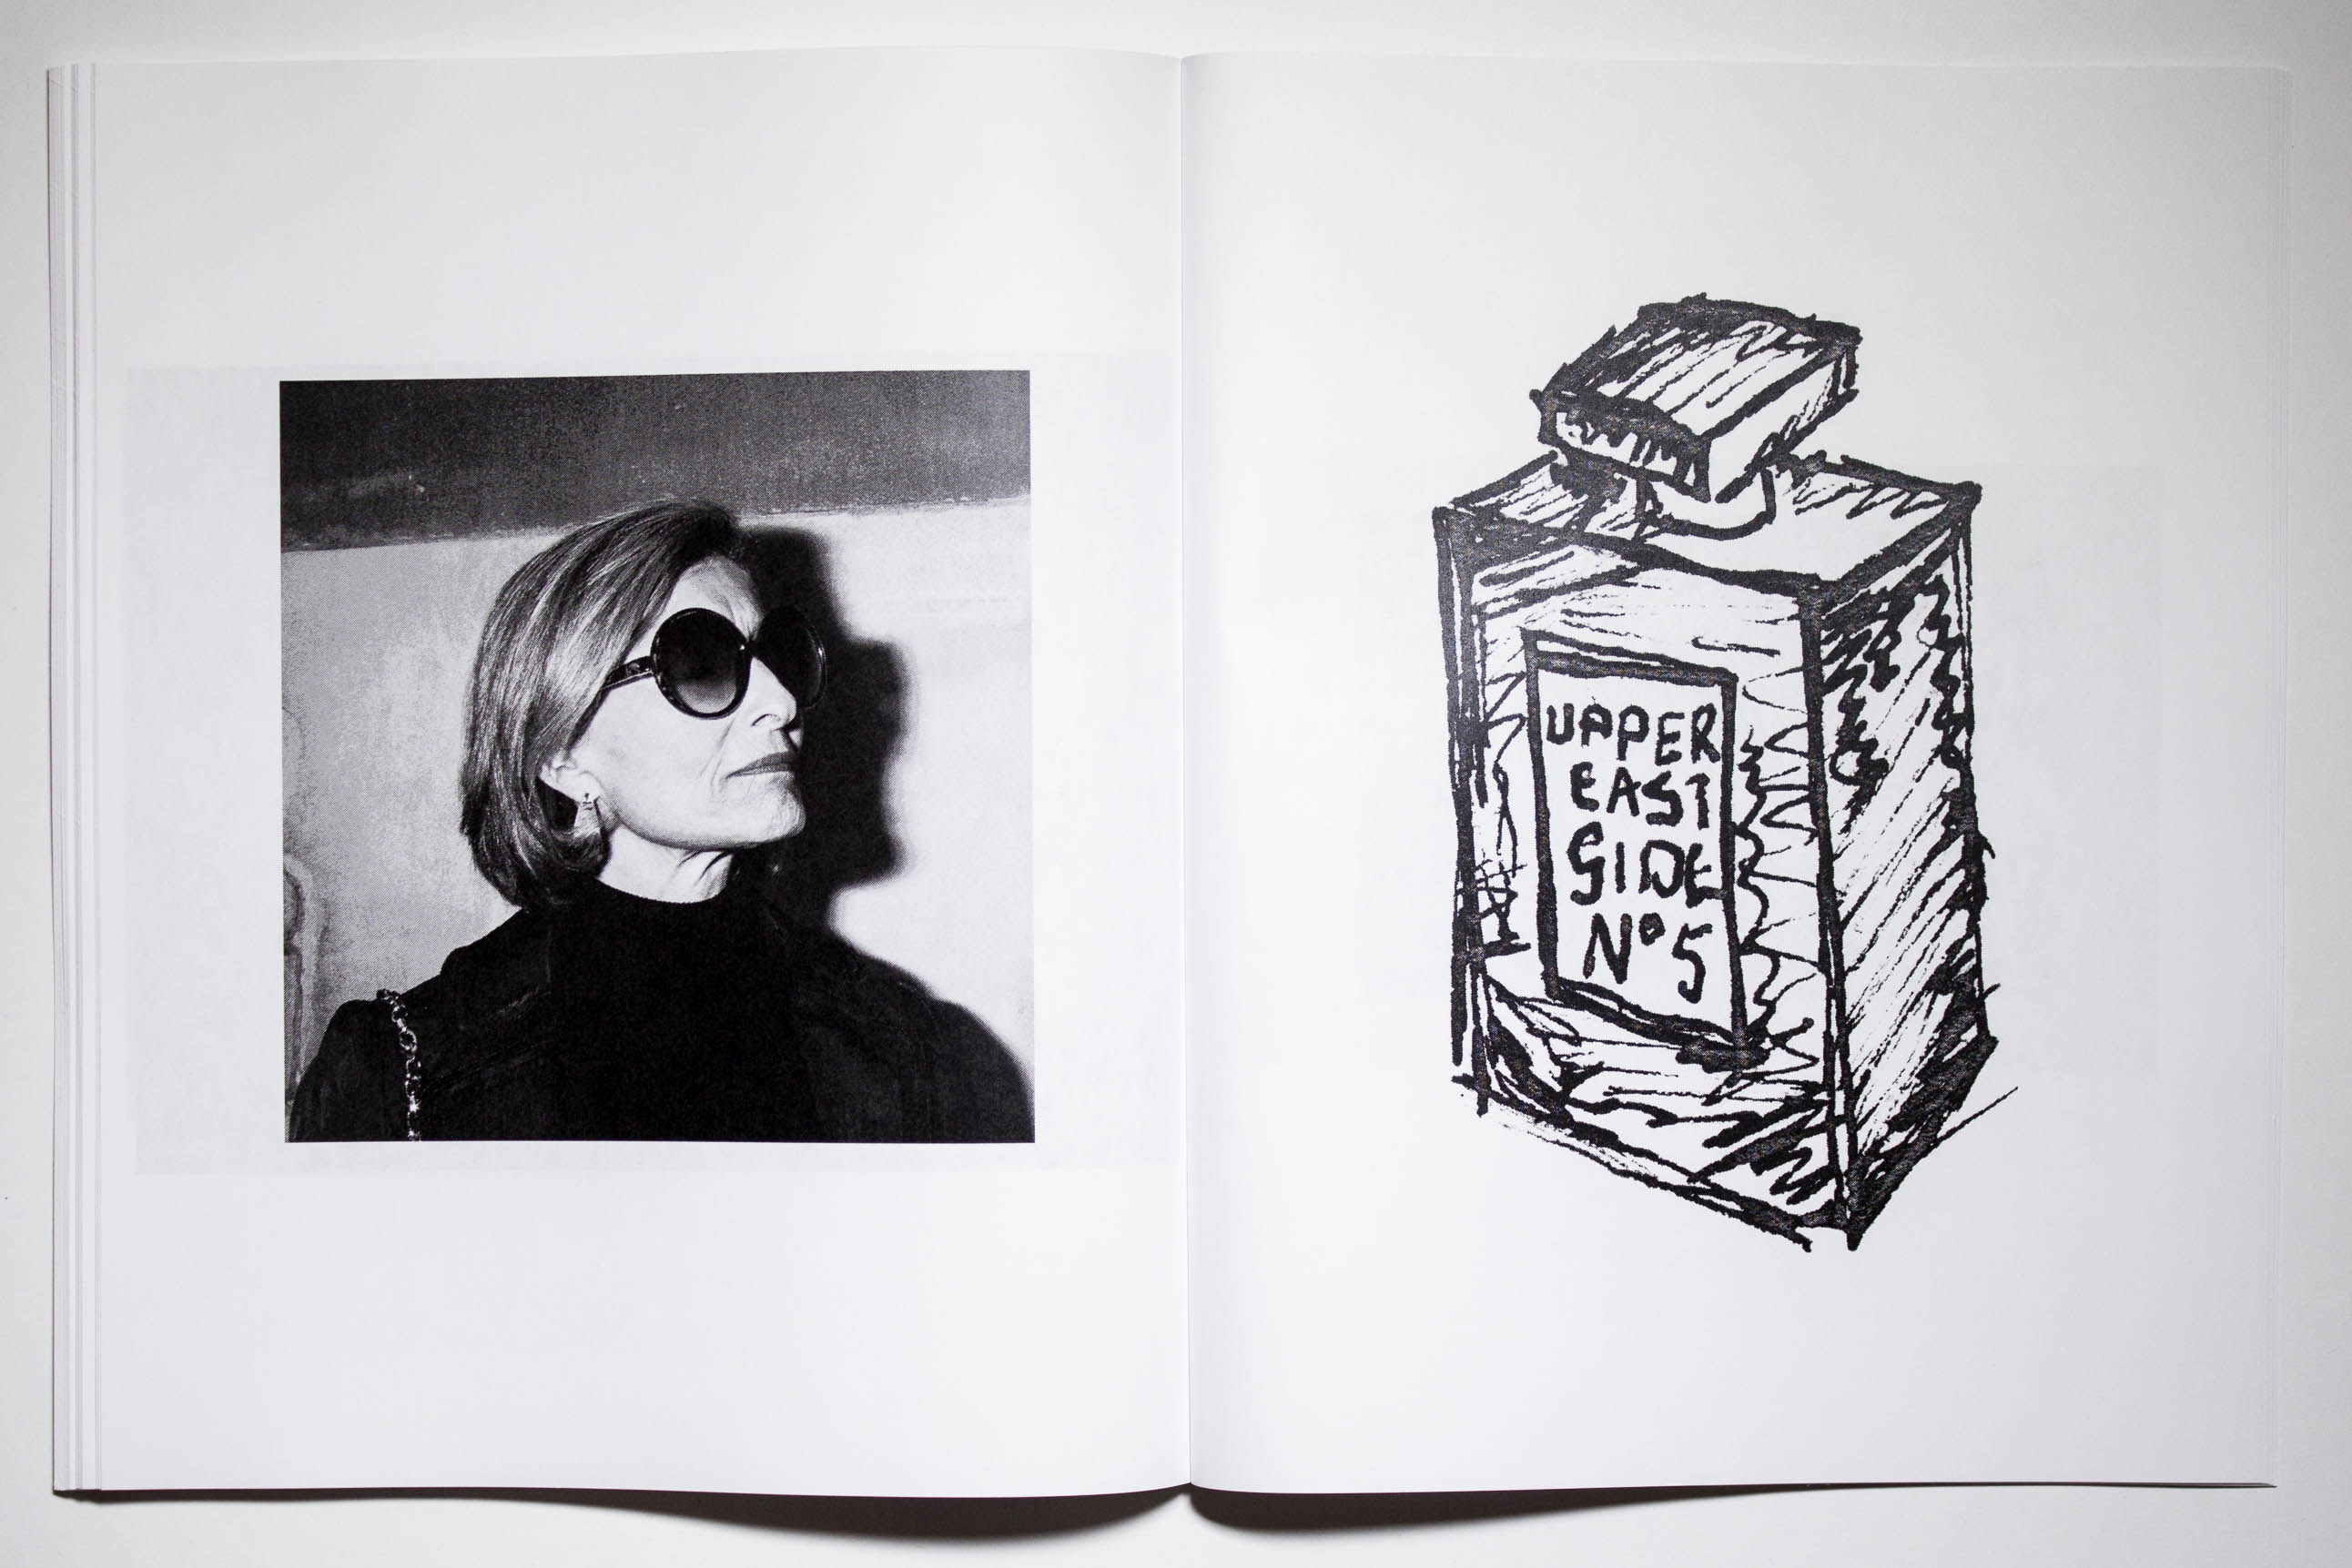 UPPER
EAST
SIDE
Nº5